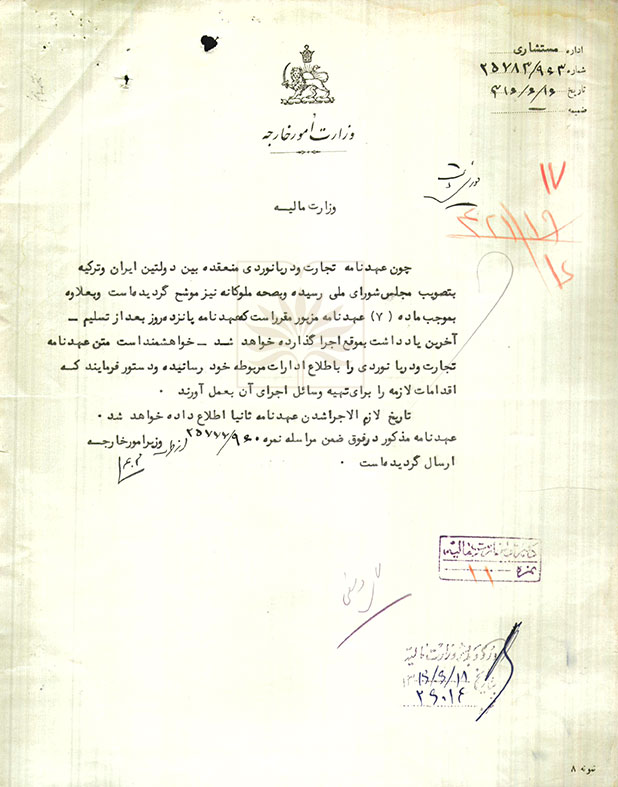 اداره مستشاری
شماره ۲۵۷۸۳/۹۶۳
تاریخ ۳۱۶/۶/۱۶
ضمیمه
وزارت امور خارجه
فوری است
۱۷
وزارت مالیه
چون عهدنامه تجارت ودریانوردی منعقده بین دولتین ایران وترکیه
بتصویب مجلس شورای ملی رسیده وبصحه ملوکانه نیز موشح گردیده‌است وبعلاوه
بموجب ماده (۷) عهدنامه مزبور مقرراست که عهدنامه پانزده روز بعد از تسلیم ـ
آخرین یادداشت بموقع اجرا گذارده خواهد شد ـ خواهشمند است متن عهدنامه
تجارت ودریا نوردی را باطلاع ادارات مربوطه خود رسانیده ودستور فرمایند که
اقدامات لازمه را برای تهیه وسائل اجرای آن بعمل آورند .
تاریخ لازم الاجراشدن عهدنامه ثانیا اطلاع داده خواهد شد .
عهدنامه مذکور درفوق ضمن مراسله نمره ۲۵۷۷۷/۹۶۰ از طرف وزیر امور خارجه
ارسال گردیده‌است .
وزارت مالیه
نمره ۱۱
وزارت مالیه
تاریخ ۱۶/۶/۱۸
۲۶۰۱۶
نمونه ۸